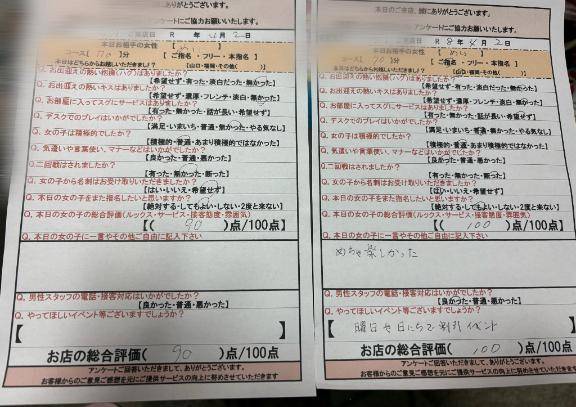 アンケートにご協力お願いいたします。
本日お相手の女性
【ご指名・フリー・本指名】
Q. お出迎えの熱い抱擁(ハグ)はありましたか?
【希望せず・有った・淡白だった・無かった】
Q. お出迎えの熱いキスはありましたか?
【希望せず・濃厚・フレンチ・淡白・無かった】
Q. お部屋に入ってスグにサービスはありましたか?
【有った・無かった・話が長い・希望せず】
Q. デスクでのプレイはいかがでしたか?
【満足・いまいち・普通・無かった・やる気なし】
Q. 女の子は積極的でしたか?
【積極的・普通・あまり積極的ではなかった】
Q. 気遣いや言葉使い、マナーなどはいかがでしたか?
【良かった・普通・悪かった】
Q. 二回戦はされましたか?
【有った・無かった・断った】
Q. 女の子から名刺はお受け取りいただきましたか?
【はい・いいえ・希望せず】
Q. 本日の女の子をまた指名したいと思いますか?
【絶対する・してもよい・しない・2度と来ない】
Q. 本日の女の子の総合評価(ルックス・サービス・接客態度・雰囲気)
【( 90 )点/100点】
Q. 本日の女の子に一言やその他ご自由に記入下さい
Q. 男性スタッフの電話・接客対応はいかがでしたか?
【良かった・普通・悪かった】
Q. やってほしいイベント等ございますでしょうか?
【 】
お店の総合評価( 90 )点/100点
アンケートにご回答いただきまして、ありがとうございます。
お客様からのご意見ご感想を元にご提供サービスの向上に努めさせていただきます
本日のご来店、誠にありがとうございます。
アンケートにご協力お願いいたします。
R 8年 4/2日
本日お相手の女性
【ご指名・フリー・本指名】
Q. お出迎えの熱い抱擁(ハグ)はありましたか?
【希望せず・有った・淡白だった・無かった】
Q. お出迎えの熱いキスはありましたか?
【希望せず・濃厚・フレンチ・淡白・無かった】
Q. お部屋に入ってスグにサービスはありましたか?
【有った・無かった・話が長い・希望せず】
Q. デスクでのプレイはいかがでしたか?
【満足・いまいち・普通・無かった・やる気なし】
Q. 女の子は積極的でしたか?
【積極的・普通・あまり積極的ではなかった】
Q. 気遣いや言葉使い、マナーなどはいかがでしたか?
【良かった・普通・悪かった】
Q. 二回戦はされましたか?
【有った・無かった・断った】
Q. 女の子から名刺はお受け取りいただきましたか?
【はい・いいえ・希望せず】
Q. 本日の女の子をまた指名したいと思いますか?
【絶対する・してもよい・しない・2度と来ない】
Q. 本日の女の子の総合評価(ルックス・サービス・接客態度・雰囲気)
【( 100 )点/100点】
Q. 本日の女の子に一言やその他ご自由に記入下さい
めちゃ楽しかった
Q. 男性スタッフの電話・接客対応はいかがでしたか?
【良かった・普通・悪かった】
Q. やってほしいイベント等ございますでしょうか?
【 曜日や日にちで割引イベント 】
お店の総合評価( 100 )点/100点
アンケートにご回答いただきまして、ありがとうございます。
お客様からのご意見ご感想を元にご提供サービスの向上に努めさせていただきます